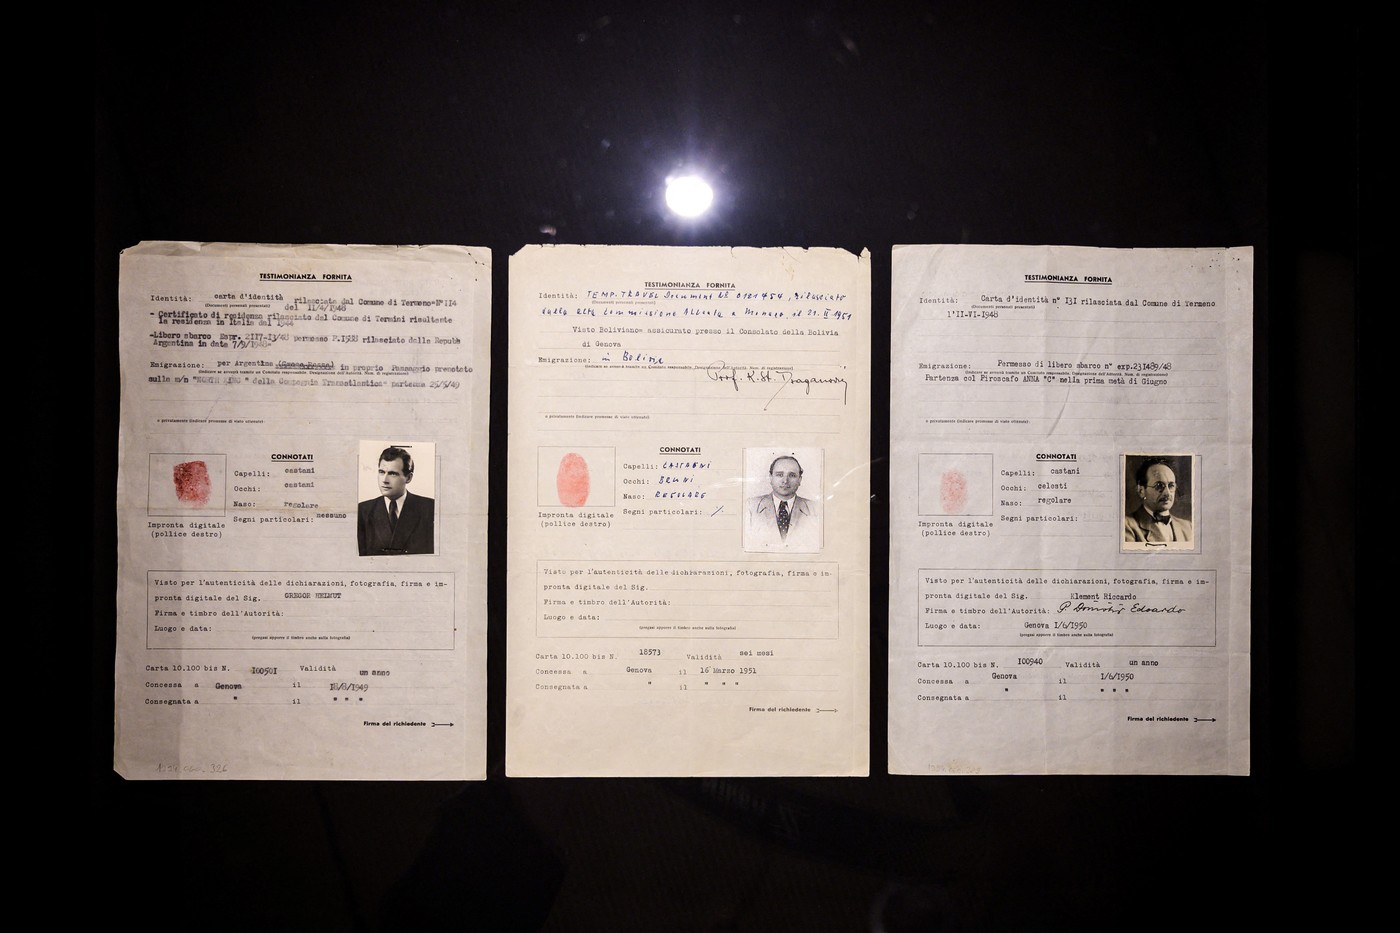 TESTIMONIANZA FORNITA
Identità: carta d'identità rilasciata dal Comune di Termeno N°114
(Documenti personali presentati)
del 11/4/1948
- Certificato di residenza rilasciato dal Comune di Termini risultante
la residenza in Italia dal 1944
-Libero sbarco Espr. 2117-13/48 permesso P.1922 rilasciato dalla Repubb
Argentina in data 7/9/1948-
Emigrazione: per Argentina in proprio Passaggio prenotato
sulla m/n "NORTH KING" della Compagnia Transatlantica partenza 25/5/49
o privatamente (indicare promessa di visto ottenuto)
CONNOTATI
Capelli: castani
Occhi: castani
Naso: regolare
Segni particolari: nessuno
Impronta digitale
(pollice destro)
Visto per l'autenticità delle dichiarazioni, fotografia, firma e im-
pronta digitale del Sig. GREGOR HELMUT
Firma e timbro dell'Autorità:
Luogo e data:
(pregasi apporre il timbro anche sulla fotografia)
Carta 10.100 bis N. 100501 Validità un anno
Concessa a Genova il 18/8/1949
Consegnata a " il " " "
Firma del richiedente
TESTIMONIANZA FORNITA
Identità: TEMP. TRAVEL Document № 0121454, rilasciato
(Documenti personali presentati)
dalla alta commissione Alleata a Monaco, il 21. II 1951
Visto Boliviano= assicurato presso il Consolato della Bolivia
di Genova
Emigrazione: in Bolivia
Prof. K. St. Draganović
o privatamente (indicare promessa di visto ottenuto)
CONNOTATI
Capelli: CASTAGNI
Occhi: BRUNI
Naso: REGOLARE
Segni particolari: /.
Impronta digitale
(pollice destro)
Visto per l'autenticità delle dichiarazioni, fotografia, firma e im-
pronta digitale del Sig.
Firma e timbro dell'Autorità:
Luogo e data:
(pregasi apporre il timbro anche sulla fotografia)
Carta 10.100 bis N. 18573 Validità sei mesi
Concessa a Genova il 16 Marzo 1951
Consegnata a " il " " "
Firma del richiedente
TESTIMONIANZA FORNITA
Identità: Carta d'identità n° 131 rilasciata dal Comune di Termeno
(Documenti personali presentati)
l'II-VI-1948
Emigrazione: Permesso di libero sbarco n° exp.231489/48
Partenza col Piroscafo ANNA "C" nella prima metà di Giugno
o privatamente (indicare promessa di visto ottenuto)
CONNOTATI
Capelli: castani
Occhi: celesti
Naso: regolare
Segni particolari:
Impronta digitale
(pollice destro)
Visto per l'autenticità delle dichiarazioni, fotografia, firma e im-
pronta digitale del Sig. Klement Riccardo
Firma e timbro dell'Autorità: P. Dömöter Edoardo
Luogo e data: Genova 1/6/1950
(pregasi apporre il timbro anche sulla fotografia)
Carta 10.100 bis N. 100940 Validità un anno
Concessa a Genova il 1/6/1950
Consegnata a " il " " "
Firma del richiedente